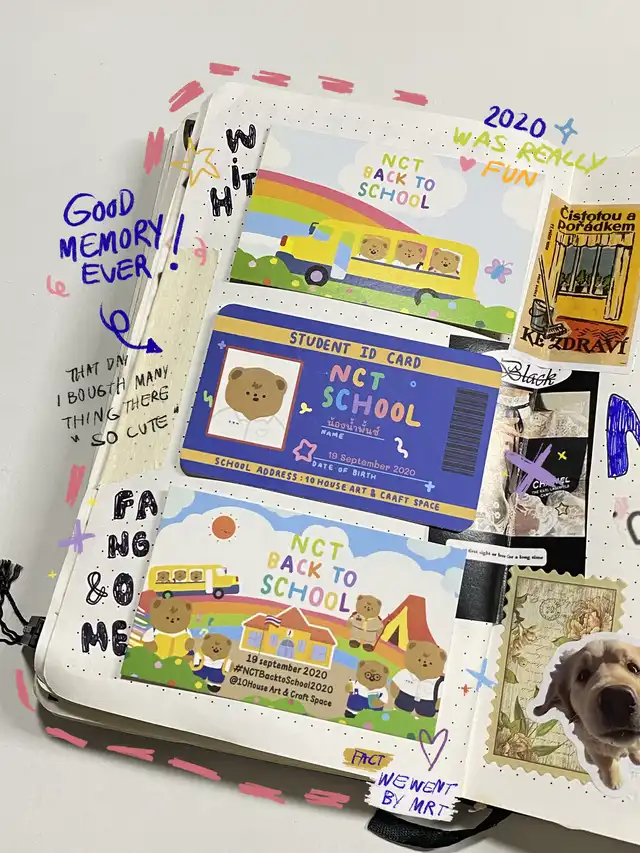 2020
WAS REALLY
FUN
GOOD
MEMORY
EVER!
THAT DAY
I BOUGTH MANY
THING THERE
" SO CUTE "
WiTH
NCT
BACK TO
SCHOOL
STUDENT ID CARD
NCT
SCHOOL
น้องน้ำพั้นช์
NAME
19 September 2020
DATE OF BIRTH
SCHOOL ADDRESS : 10 HOUSE ART & CRAFT SPACE
FA
NG
& O
ME
NCT
BACK TO
SCHOOL
19 september 2020
#NCTBacktoSchool2020
@10House Art & Craft Space
FACT
WE WENT
BY MRT
Čistotou a
pořádkem
KE ZDRAVÍ
Black
CHANEL
first sight or loc for a long time